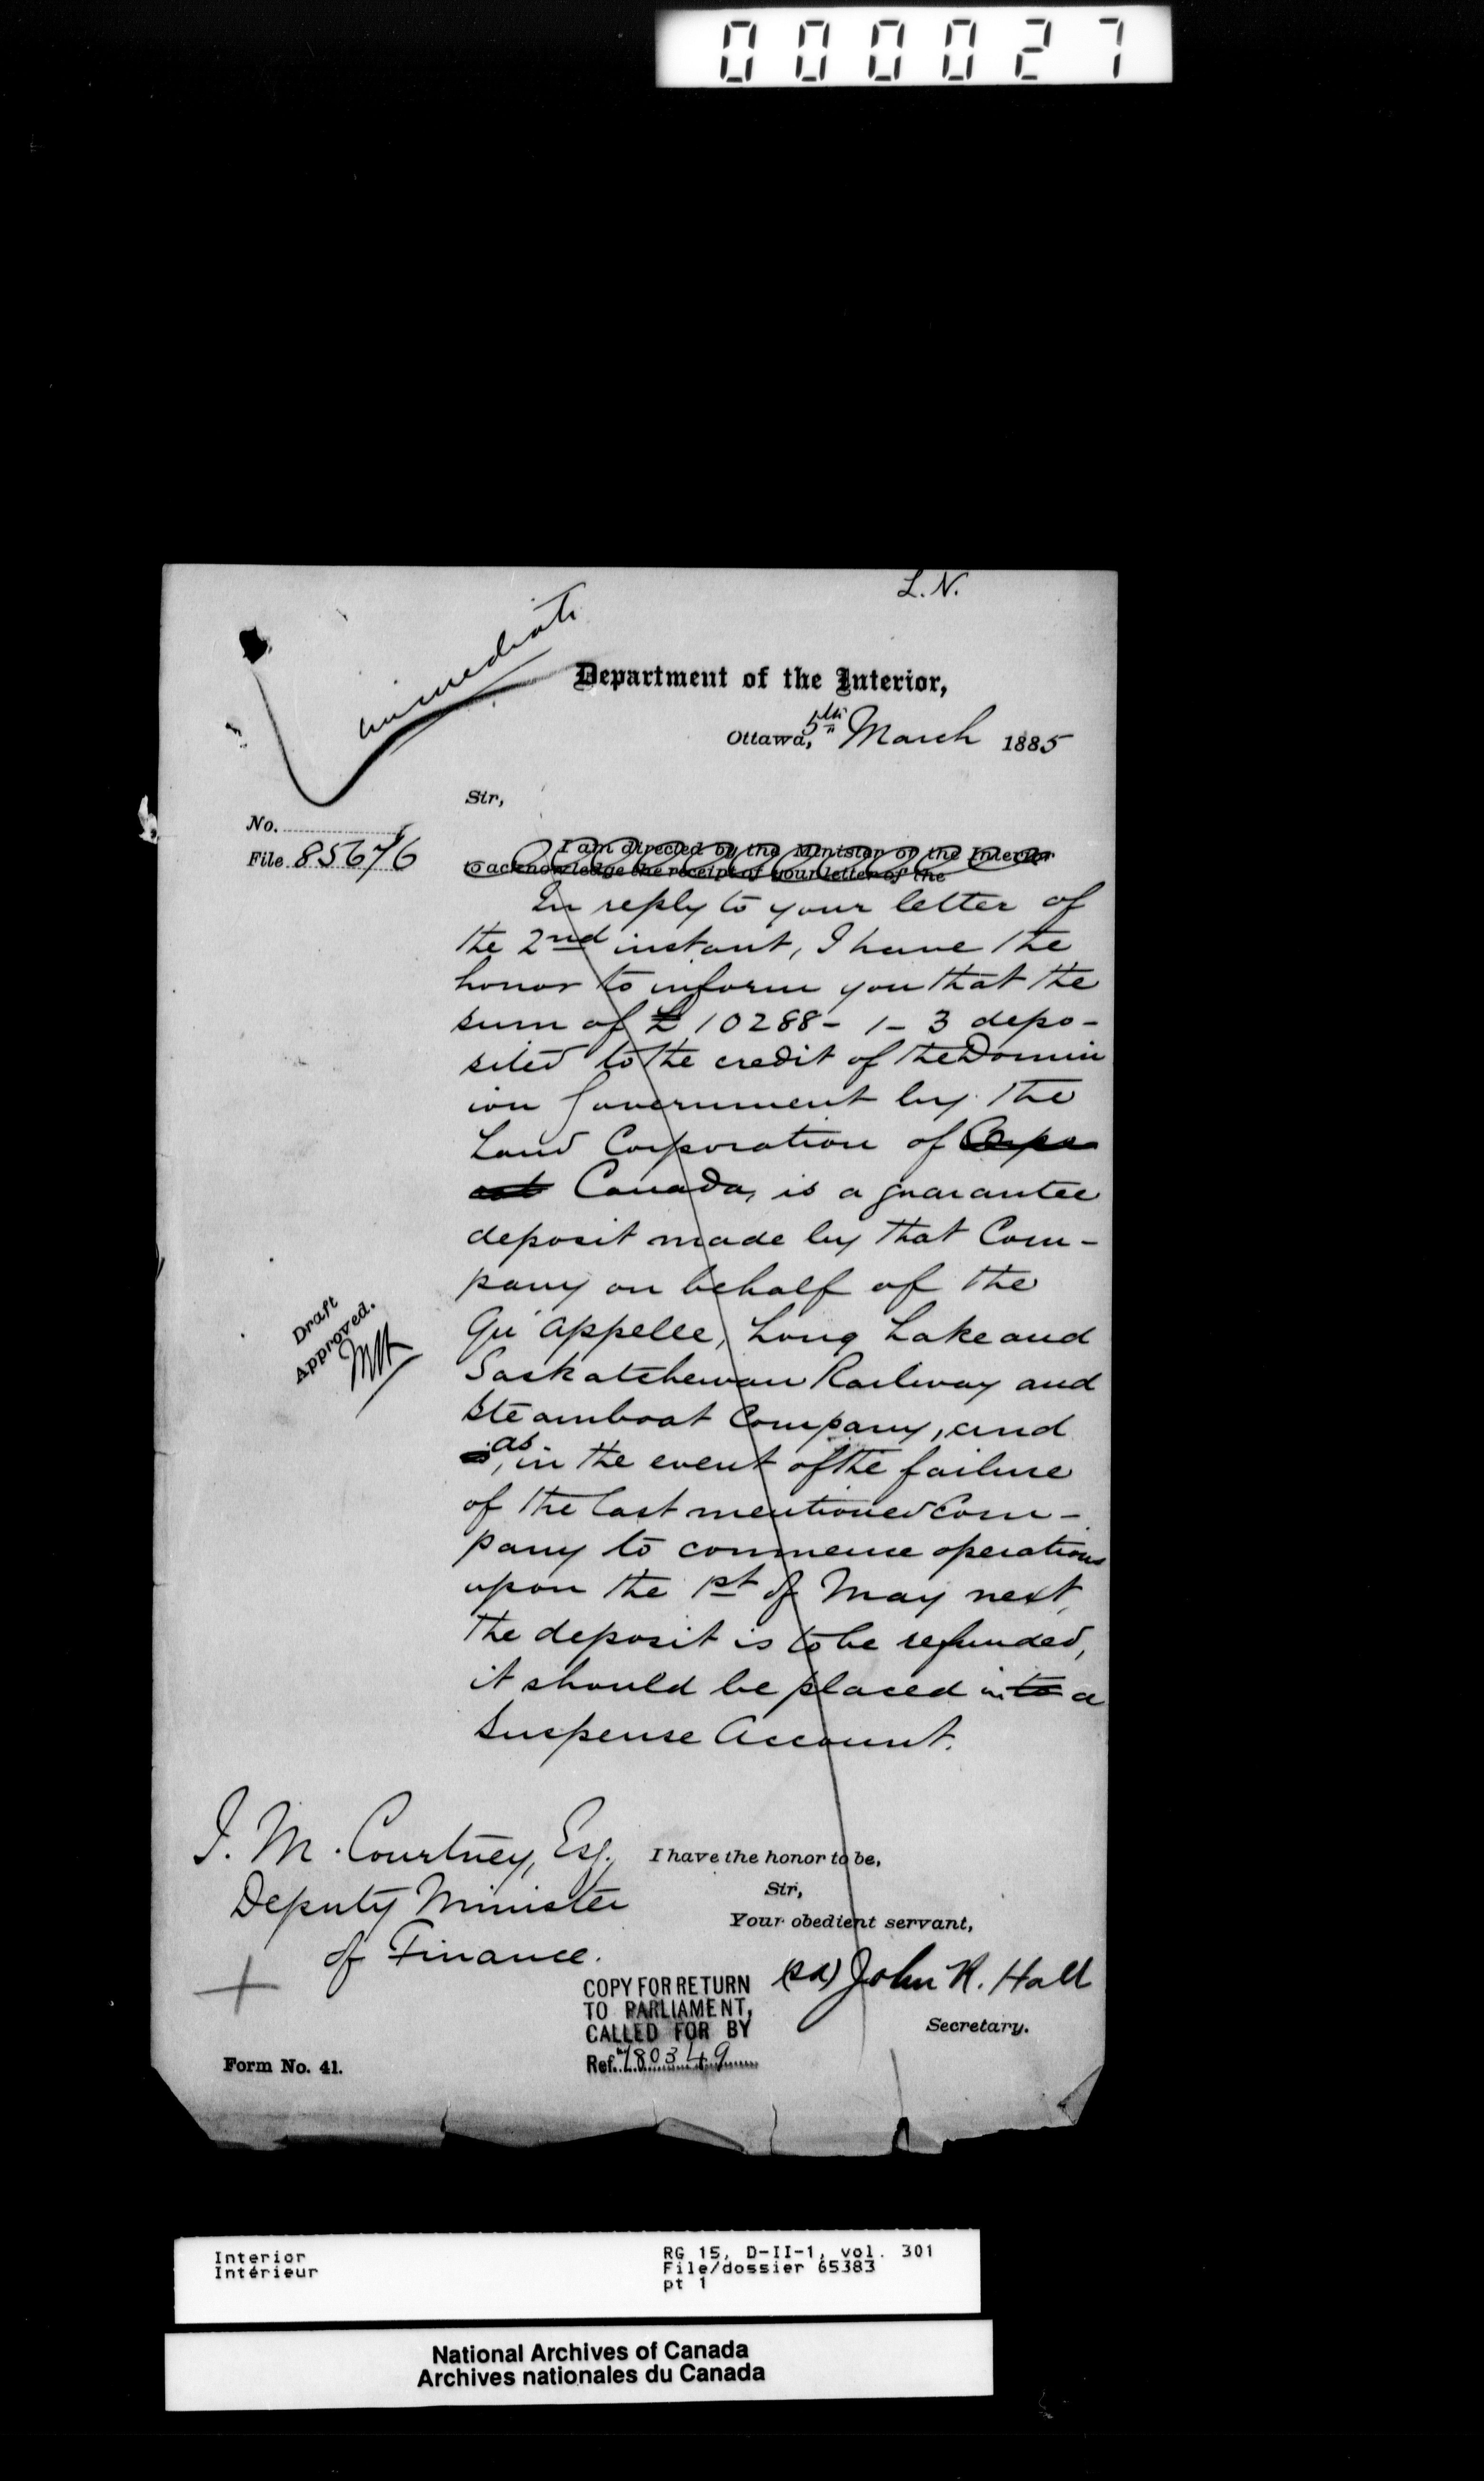 000027
L.N.
immediate
Department of the Interior,
Ottawa, 5th March 1885
Sir,
No.
File 85676
I am directed by the Minister of the Interior
to acknowledge the receipt of your letter of the
In reply to your letter of
the 2nd instant, I have the
honor to inform you that the
sum of £10288-1-3 depo-
sited to the credit of the Domin
ion Government by the
Land Corporation of
Canada, is a guarantee
deposit made by that Com-
pany on behalf of the
Qu'Appelle, Long Lake and
Saskatchewan Railway and
Steamboat Company, and
as, in the event of the failure
of the last mentioned Com-
pany to commence operations
upon the 1st of May next,
the deposit is to be refunded,
it should be placed in to a
Suspense Account.
Draft
Approved.
J. M. Courtney, Esq.,
Deputy Minister
of Finance.
I have the honor to be,
Sir,
Your obedient servant,
(sd) John R. Hall
Secretary.
COPY FOR RETURN
TO PARLIAMENT,
CALLED FOR BY
Ref. 180349
Form No. 41.
Interior
Intérieur
RG 15, D-II-1, vol. 301
File/dossier 65383
pt 1
National Archives of Canada
Archives nationales du Canada